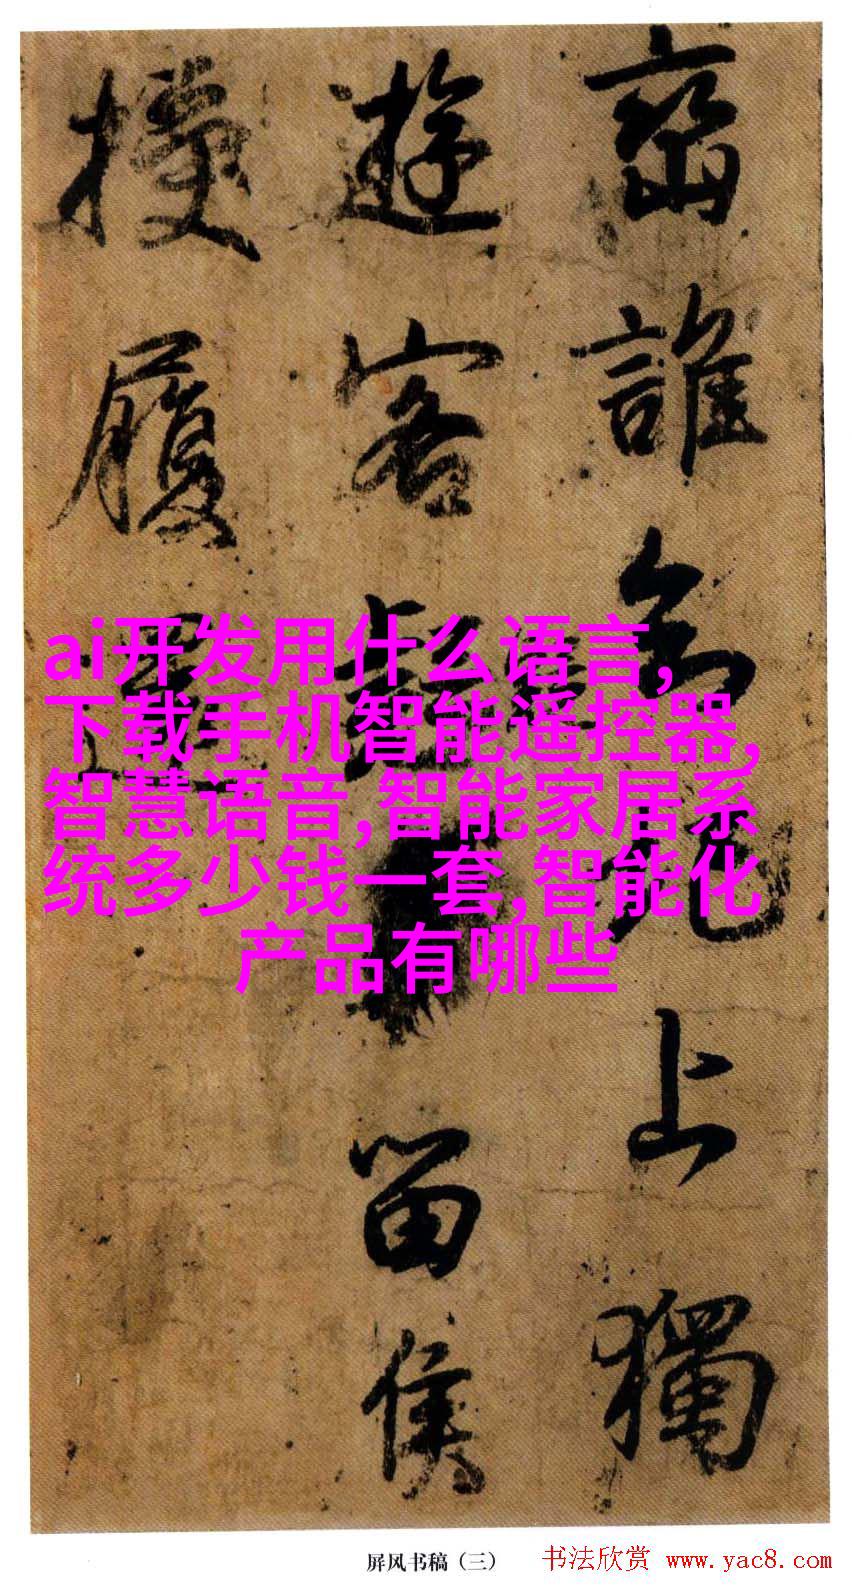 誰上獨
遊客留侯
履
ai开发用什么语言,
下载手机智能遥控器,
智慧语音,智能家居系
统多少钱一套,智能化
产品有哪些
屏风书稿（三）
书法欣赏 www.yac8.com